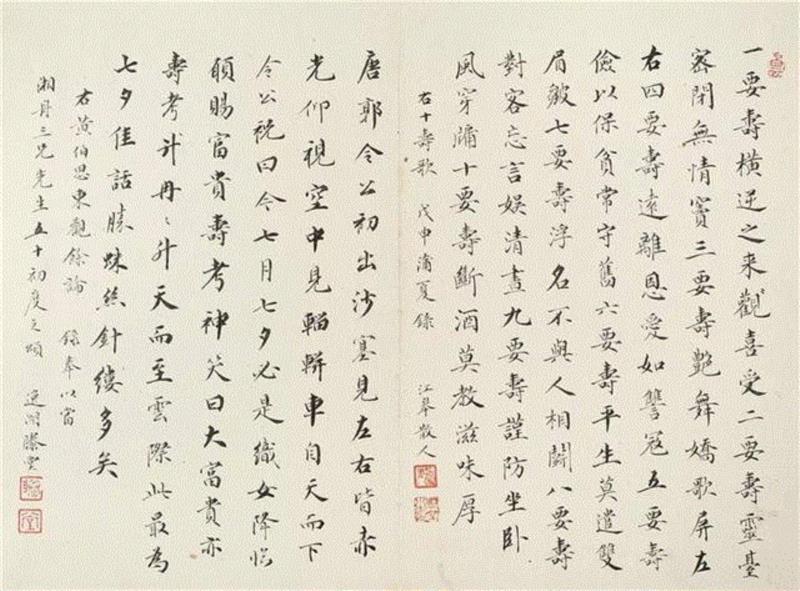 一要壽橫逆之来觀喜受二要壽靈臺
密閉無情竇三要壽艶舞嬌歌屏左
右四要壽遠離恩受如讐寇五要壽
儉以保貧常守舊六要壽平生莫遣雙
眉皺七要壽浮名不與人相鬭八要壽
對客忘言娛清晝九要壽謹防坐卧
風穿牖十要壽斷酒莫教滋味厚
右十壽歌 戊申蒲夏錄 江皋散人
唐郭令公初出沙塞見左右皆赤
光仰視空中見輜軿車自天而下
令公祝曰今七月七夕必是織女降临
願賜富貴壽考神笑曰大富貴亦
壽考升冉〻升天而至雲際此最為
七夕佳話勝蛛絲針縷多矣
右黄伯思東觀餘論 錄奉以當
湘舟三兄先生五十初度之頌